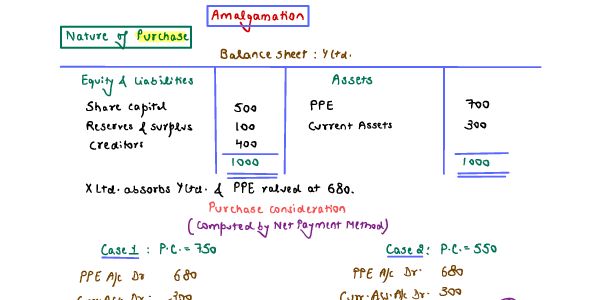 Amalgamation
Nature of Purchase
Balance sheet : Y Ltd.
Equity & Liabilities Assets
Share capital 500 PPE 700
Reserves & surplus 100 Current Assets 300
Creditors 400
1000 1000
X Ltd. absorbs Y Ltd. & PPE valued at 680.
Purchase consideration
(Computed by Net Payment Method)
Case 1 : P.C. = 750 Case 2 : P.C. = 550
PPE A/c Dr 680 PPE A/c Dr. 680
300 Curr. Ass. A/c Dr. 300